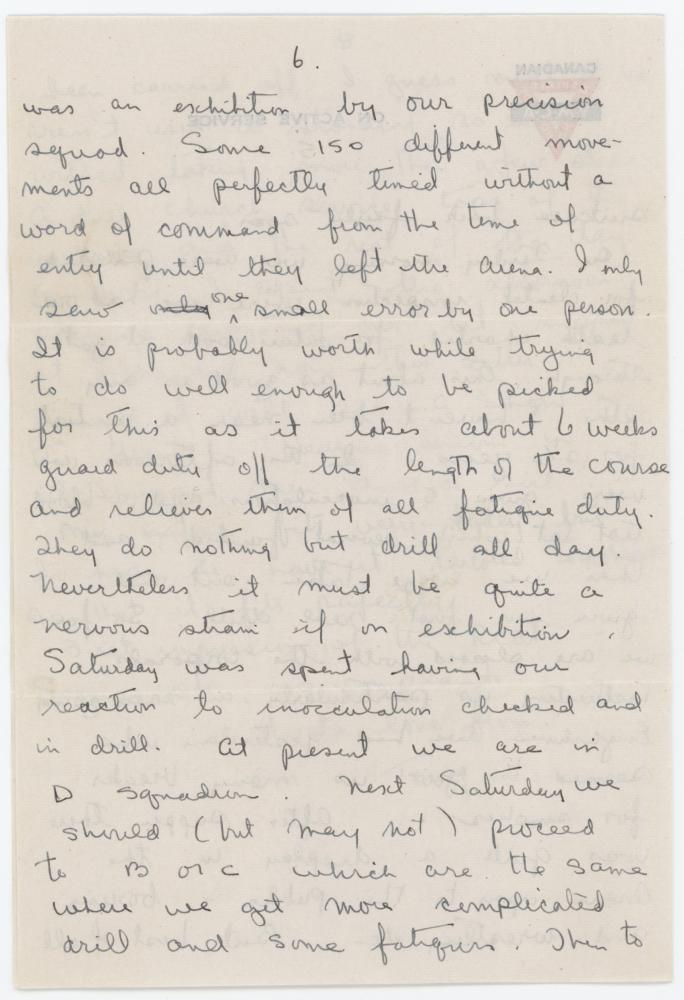 6.
was an exhibition by our precision
squad. Some 150 different move-
ments all perfectly timed without a
word of command from the time of
entry until they left the arena. I only
saw only one small error by one person.
It is probably worth while trying
to do well enough to be picked
for this as it takes about 6 weeks
guard duty off the length of the course
and relieves them of all fatigue duty.
They do nothing but drill all day.
Nevertheless it must be quite a
nervous strain if on exhibition.
Saturday was spent having our
reaction to inocculation checked and
in drill. At present we are in
D squadron. Next Saturday we
should (but may not) proceed
to B or C which are the same
where we get more complicated
drill and some fatigues. Then to
CANADIAN
ON ACTIVE SERVICE